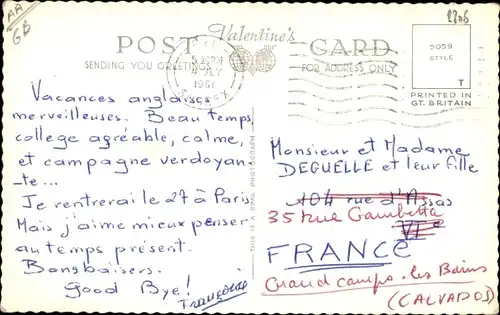 AA
GB
2206
POST Valentine's CARD
SENDING YOU GREETINGS
FOR ADDRESS ONLY
5 15 PM
4 JLY
1961
SUSSEX
5059
STYLE
T
PRINTED IN
GT. BRITAIN
THIS IS A REAL PHOTOGRAPH
Vacances anglaises
merveilleuses. Beau temps,
college agréable, calme,
et campagne verdoyan-
te...
Je rentrerai le 27 à Paris
Mais j'aime mieux penser
au temps présent.
Bons baisers.
Good Bye!
Françoise
Monsieur et Madame
DEGUELLE et leur fille
104 rue d'Assas
35 rue Gambetta
VIe
FRANCE
Grand camps. les Bains
(CALVADOS)